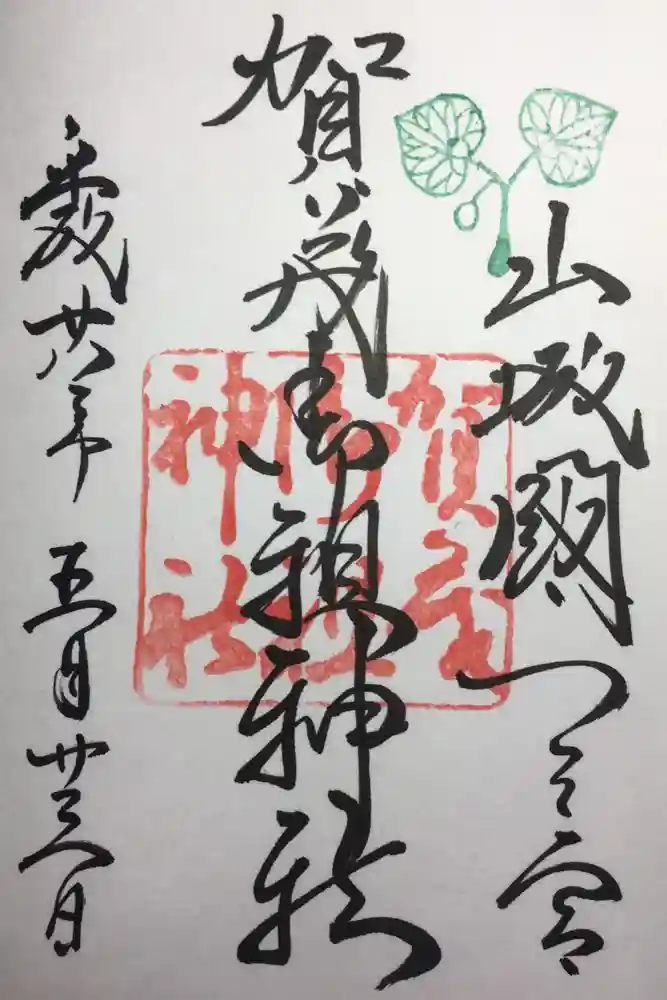 山城國一之宮
賀茂御祖神社
平成廿八年 五月 日
賀茂
御祖
神社